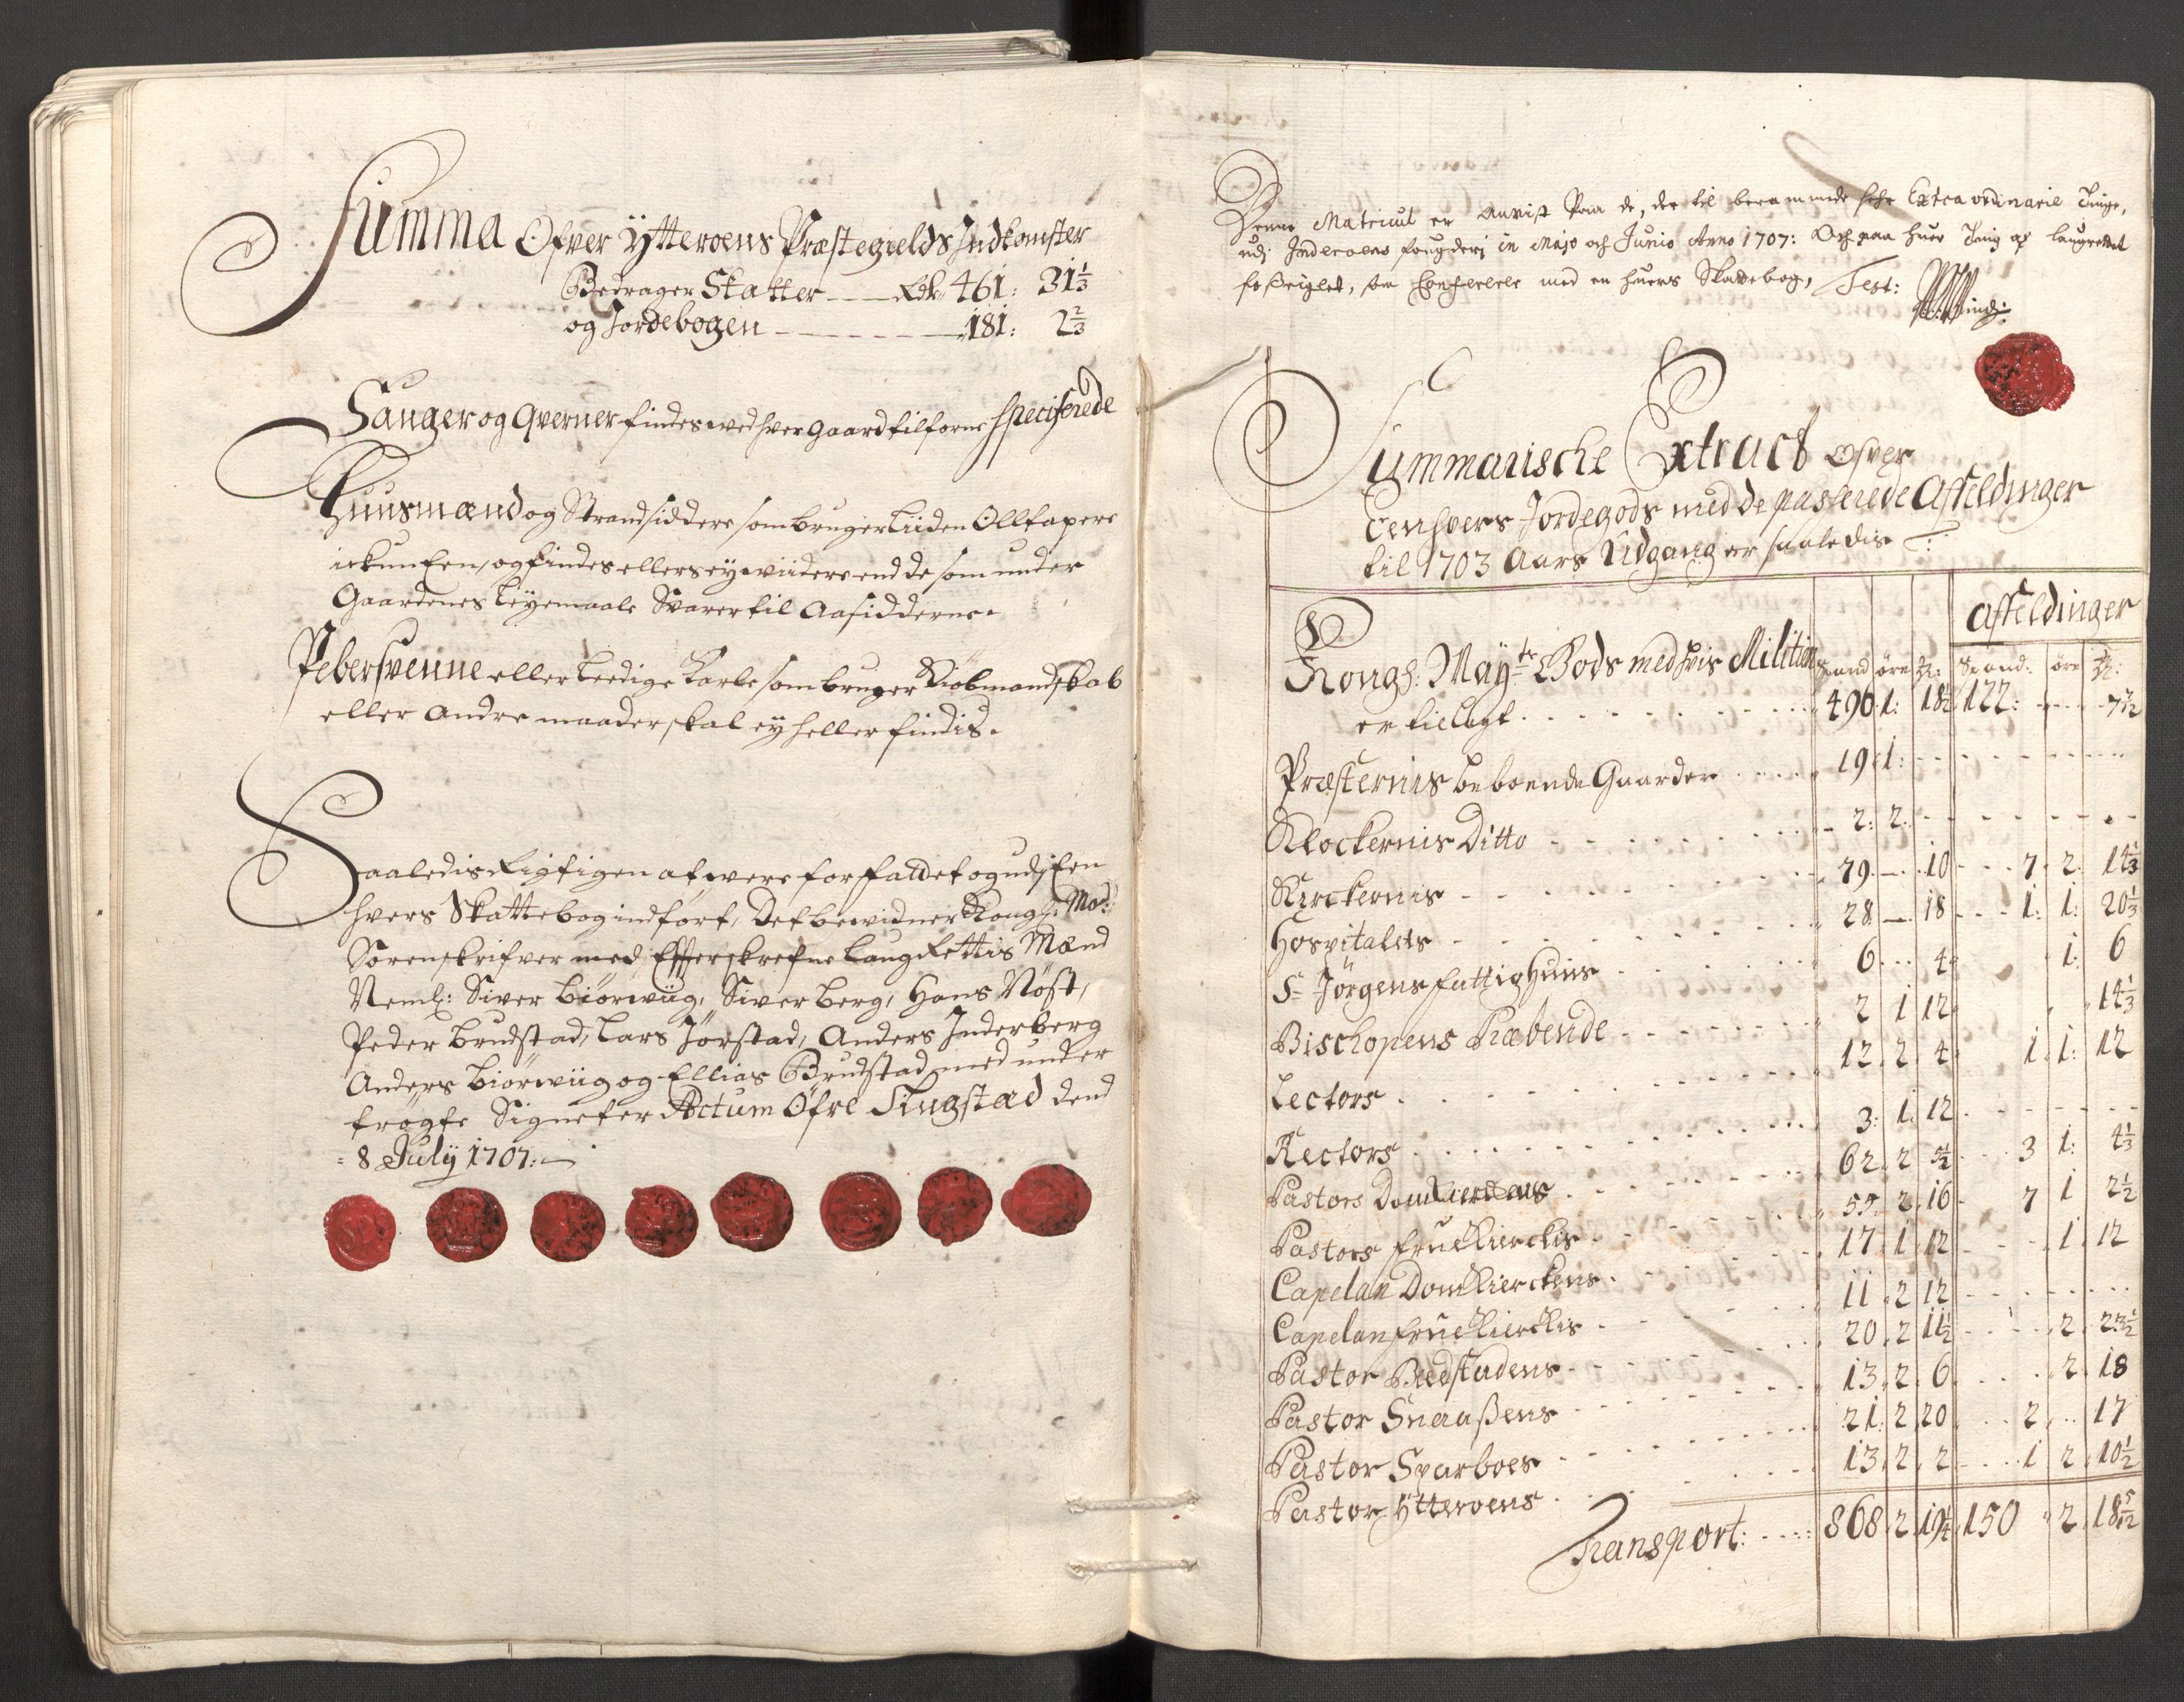 Summa Ofver Ÿtteroens Præstegields Indkomster
Bedrager Skatter — Rdr 461: 31 1/3
og Jordebogen — 181: 2 2/3
Sauger og Qverner findes ved hver Gaard tilforne Specificerede
Huusmænd og Strandsiddere som bruger Liiden Olltapere
ickun Een, og findes ellers eÿ viidere end de som under
Gaardenes Leÿemaale Svarer til Aasidderne.
Pebersvenne eller Leedige Karle som bruger Kiöbmandskab
eller Andre maader skal eÿ heller findis.
Saaledis Rigtigen at were forfattet og udj Een
hvers Skattebog indfört, Det bevidner Kongs: May:
Sorenskrifver med Effterskrefne Laug Rettis Mænd
Neml: Siver Biörwiig, Siver Berg, Hans Nöst,
Peder Brudstad, Lars Jörstad, Anders Inderberg
Anders Biörwiig og Ellias Brudstad med under
trögte Signeter Actum Öfre Tingstad dend
8 Julÿ 1707:
Denne Matricul er anvist Paa de, der til berammede Extra ordinarie Tinge,
udj Inderoens fougderj in Majo och Junio Anno 1707: Och paa huer Ting af Laugrettet
forseiglet, som Confererer med en huers Skattebog, Test:
Summarische Extract Ofver
Eenhvers Jordegods med de passerede Affeldinger
til 1703 Aars Udgang er saaledis
Affeldinger
Kongs: Maÿts Gods med hvis Militien Spand öre Spand: öre
er tillagt 490 1: 18 1/2 122: 7 1/2
Præsternis beboende Gaarder 19 1:
Klockernis Ditto 2: 2:
Kirckernis 79 — 10 7 2 14 1/3
Hospitalets 28 — 18 1: 1: 20 1/3
S: Jörgens fattighuus 6 4 1: 6
Bischopens Præbende 2 1 12 14 1/3
Lectors 12 2 4 1 1: 12
Rectors 3: 1 12
Pastors DomKierckens 62 2 5 1/2 3 1: 4 1/3
Pastors frueKierckis 55 2 16 7 1 2 1/2
Capelan DomKierckens 17 1 12 1 12
Capelan frueKierckis 11 2 12
Pastor Beedstadens 20 2 11 1/2 2 23 1/2
Pastor Snaaßens 13 2 6 2 18
Pastor Sparboes 21 2 20 2 17
Pastor Ÿtteroens 13 2 2 1 2 10 1/2
Transport: 868 2 19 1/4 150 2 18 5/12